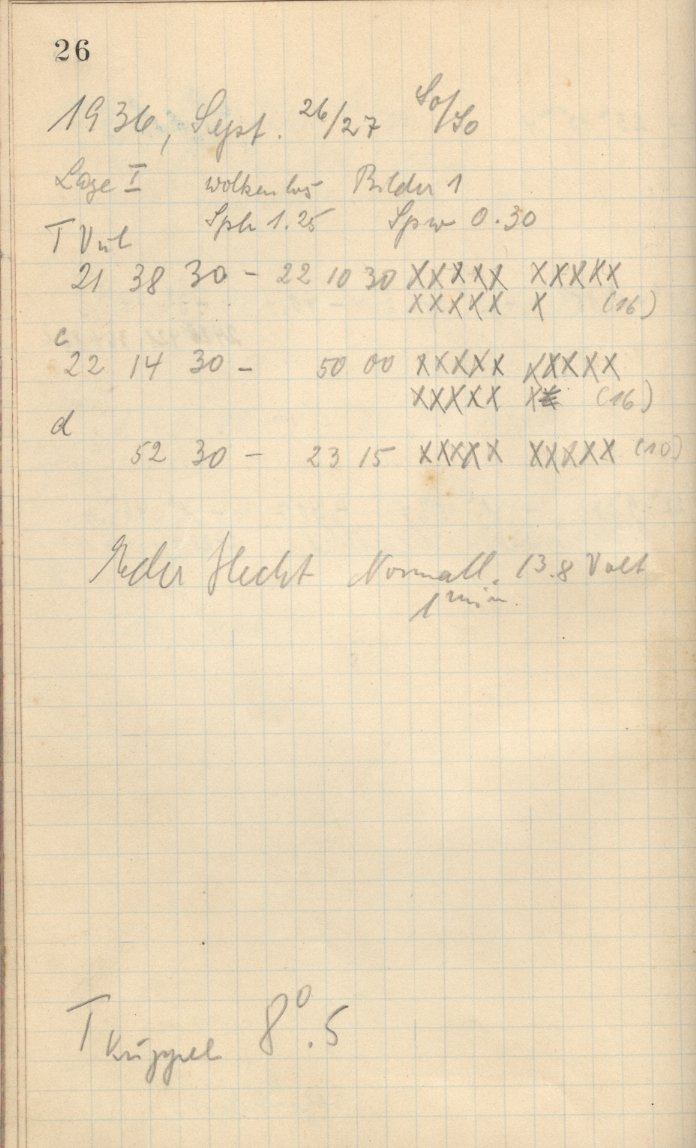 26
1936, Sept. 26/27 So/So
Lage I wolkenlos Bilder 1
Sph 1.25 Spw 0.30
T Vul
21 38 30 – 22 10 30 XXXXX XXXXX
XXXXX X (16)
c
22 14 30 – 50 00 XXXXX XXXXX
XXXXX X (16)
d
52 30 – 23 15 XXXXX XXXXX (10)
Normall. 13.8 Volt
1 min.
T Kuppel 8°.5